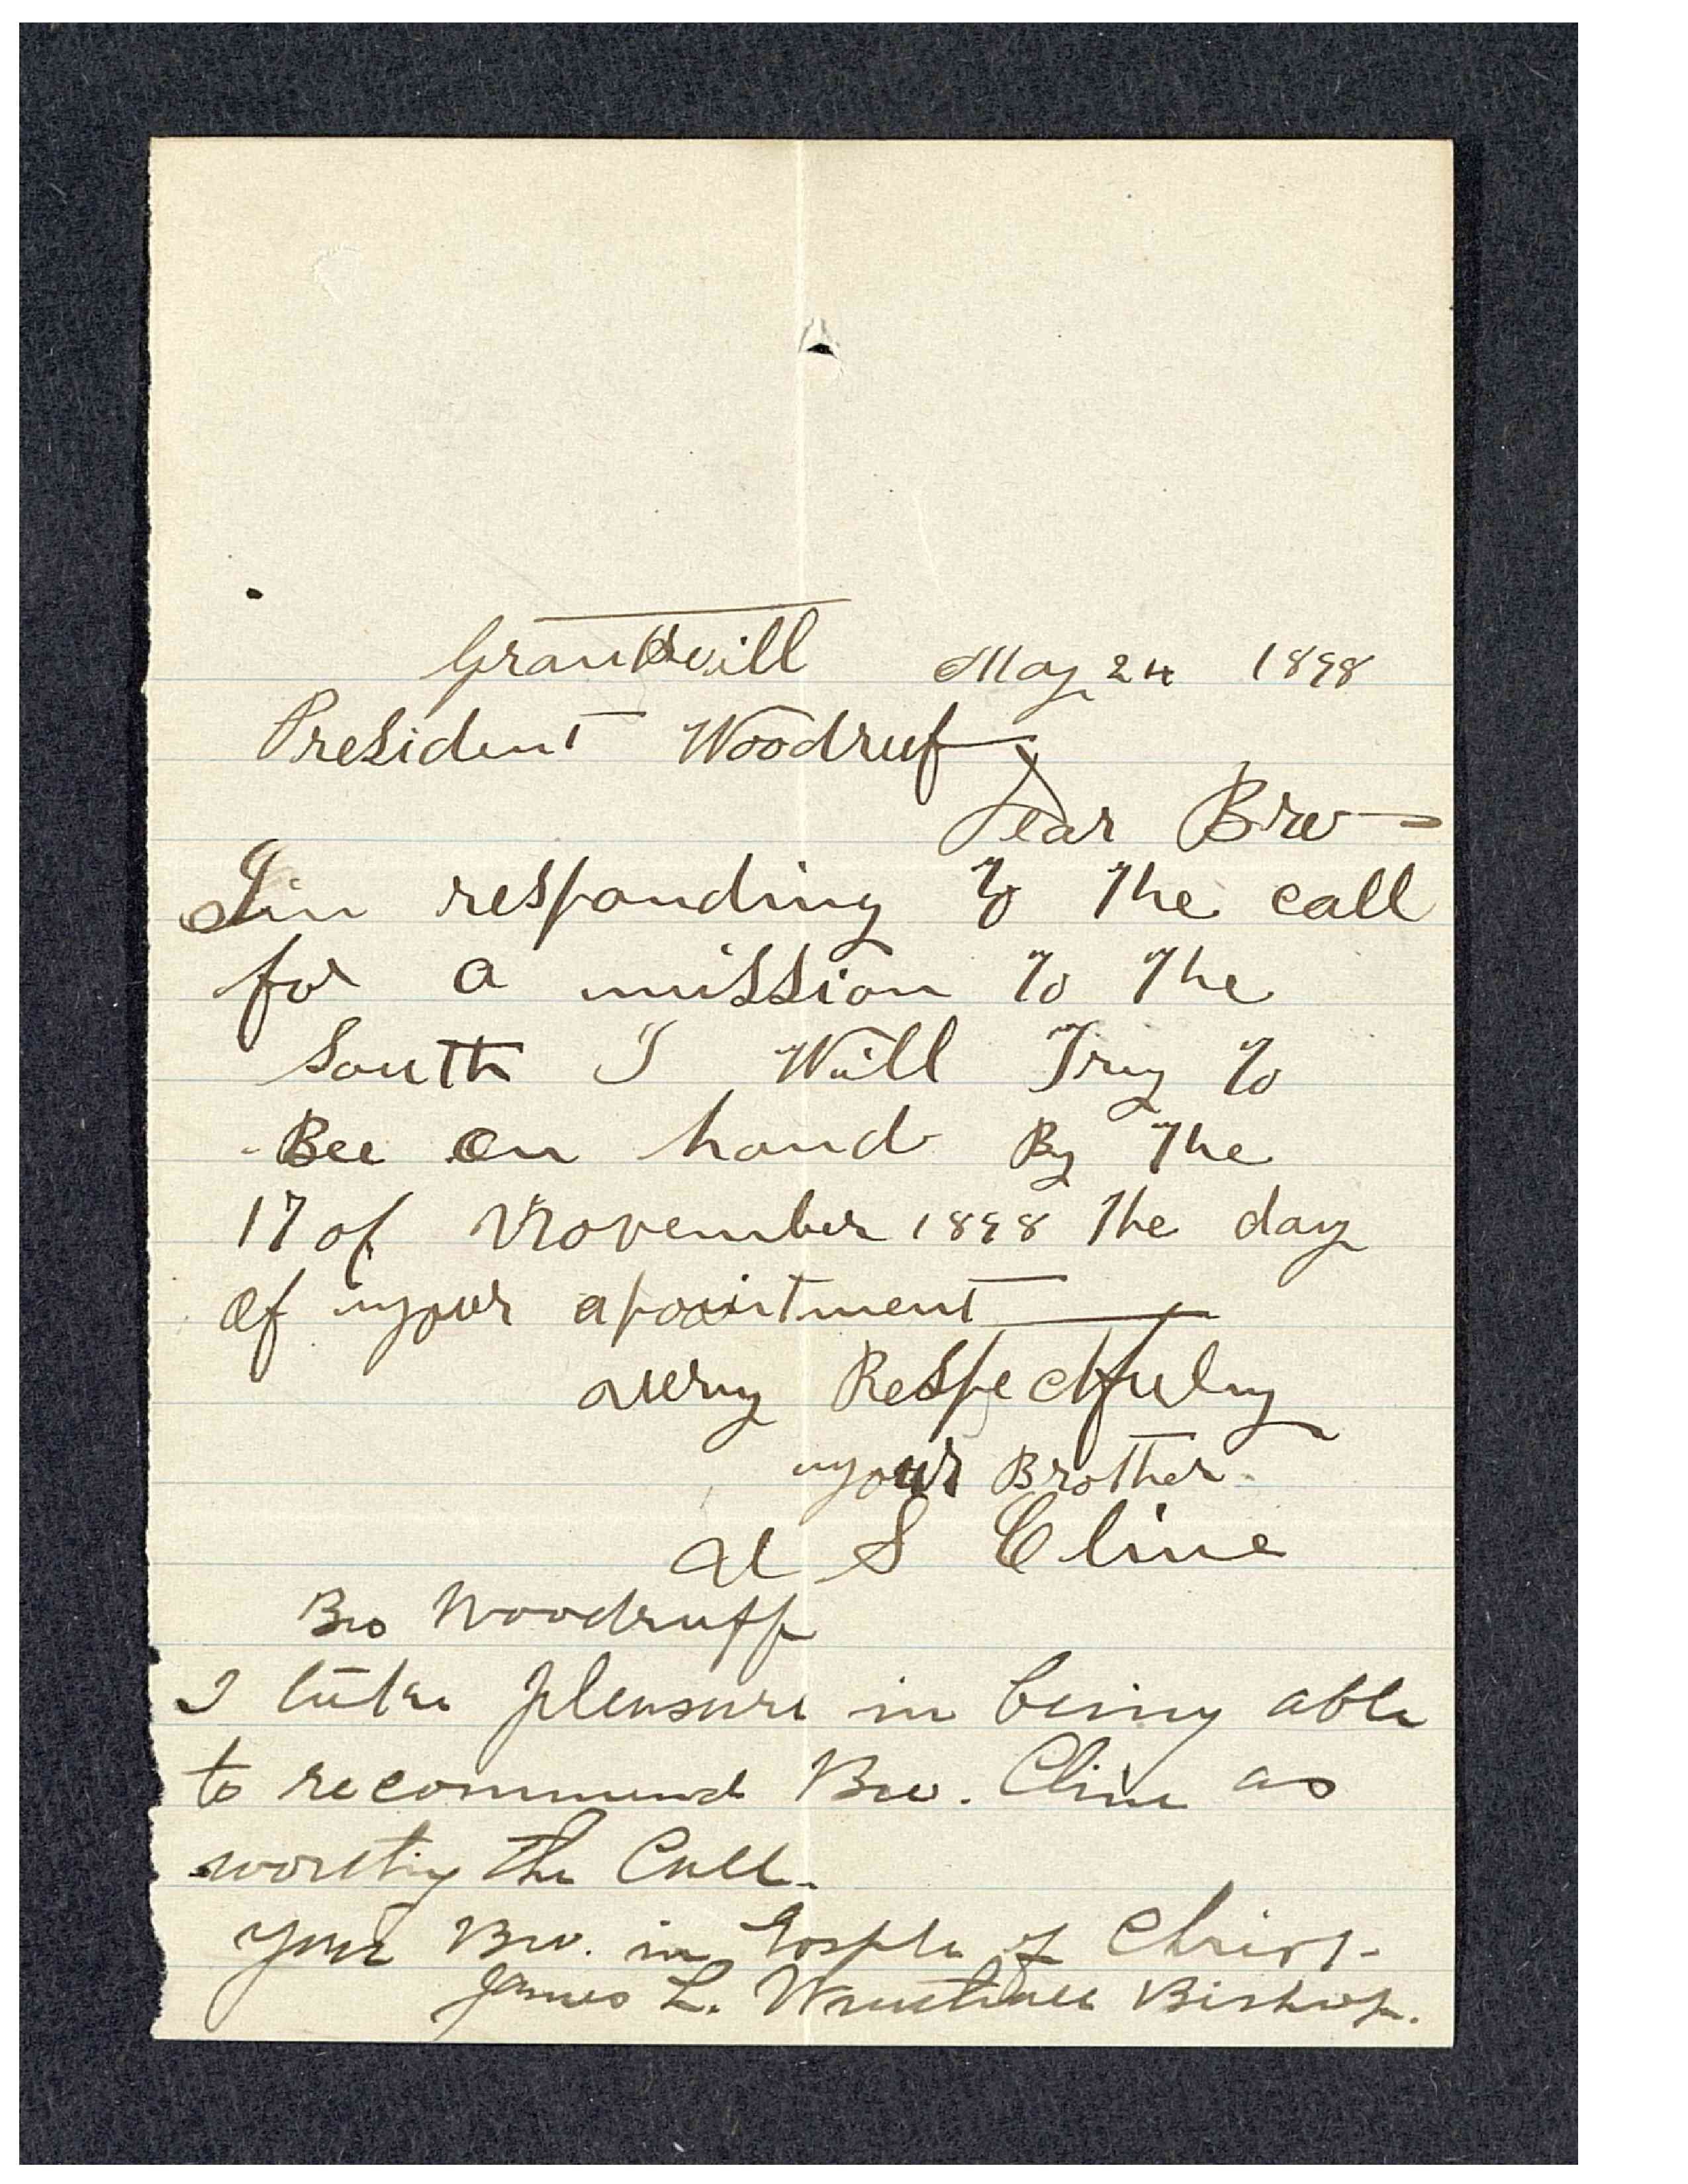 Grantsvill May 24 1898
President Woodruf
Dear Bro
In responding to the call
for a mission to the
South I Will Try to
Bee on hand By the
17 of November 1898 the day
of your apointment
very Respectfuly
your Brother
S Cline
Bro Woodruff
I take pleasure in being able
to recommend Bro. Cline as
worthy the Call.
Your Bro. in Gosple of Christ.
James L. Wrathall Bishop.